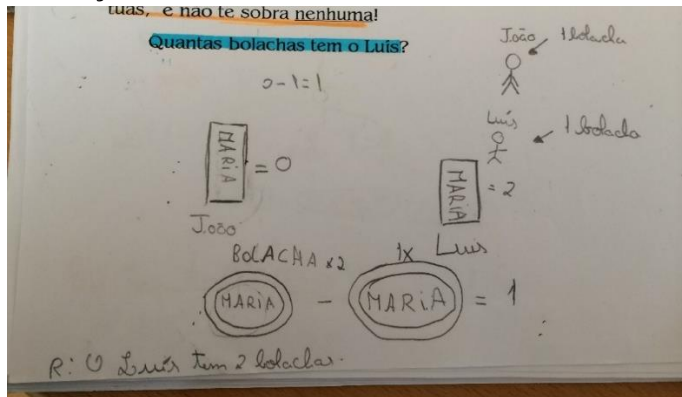 tuas, e não te sobra nenhuma!
Quantas bolachas tem o Luis?
João 1 bolacha
0-1=1
Luís 1 bolacha
MARIA = 0
MARIA = 2
João
Luis
BOLACHA x2 1x
MARIA - MARIA = 1
R: O Luís tem 2 bolachas.